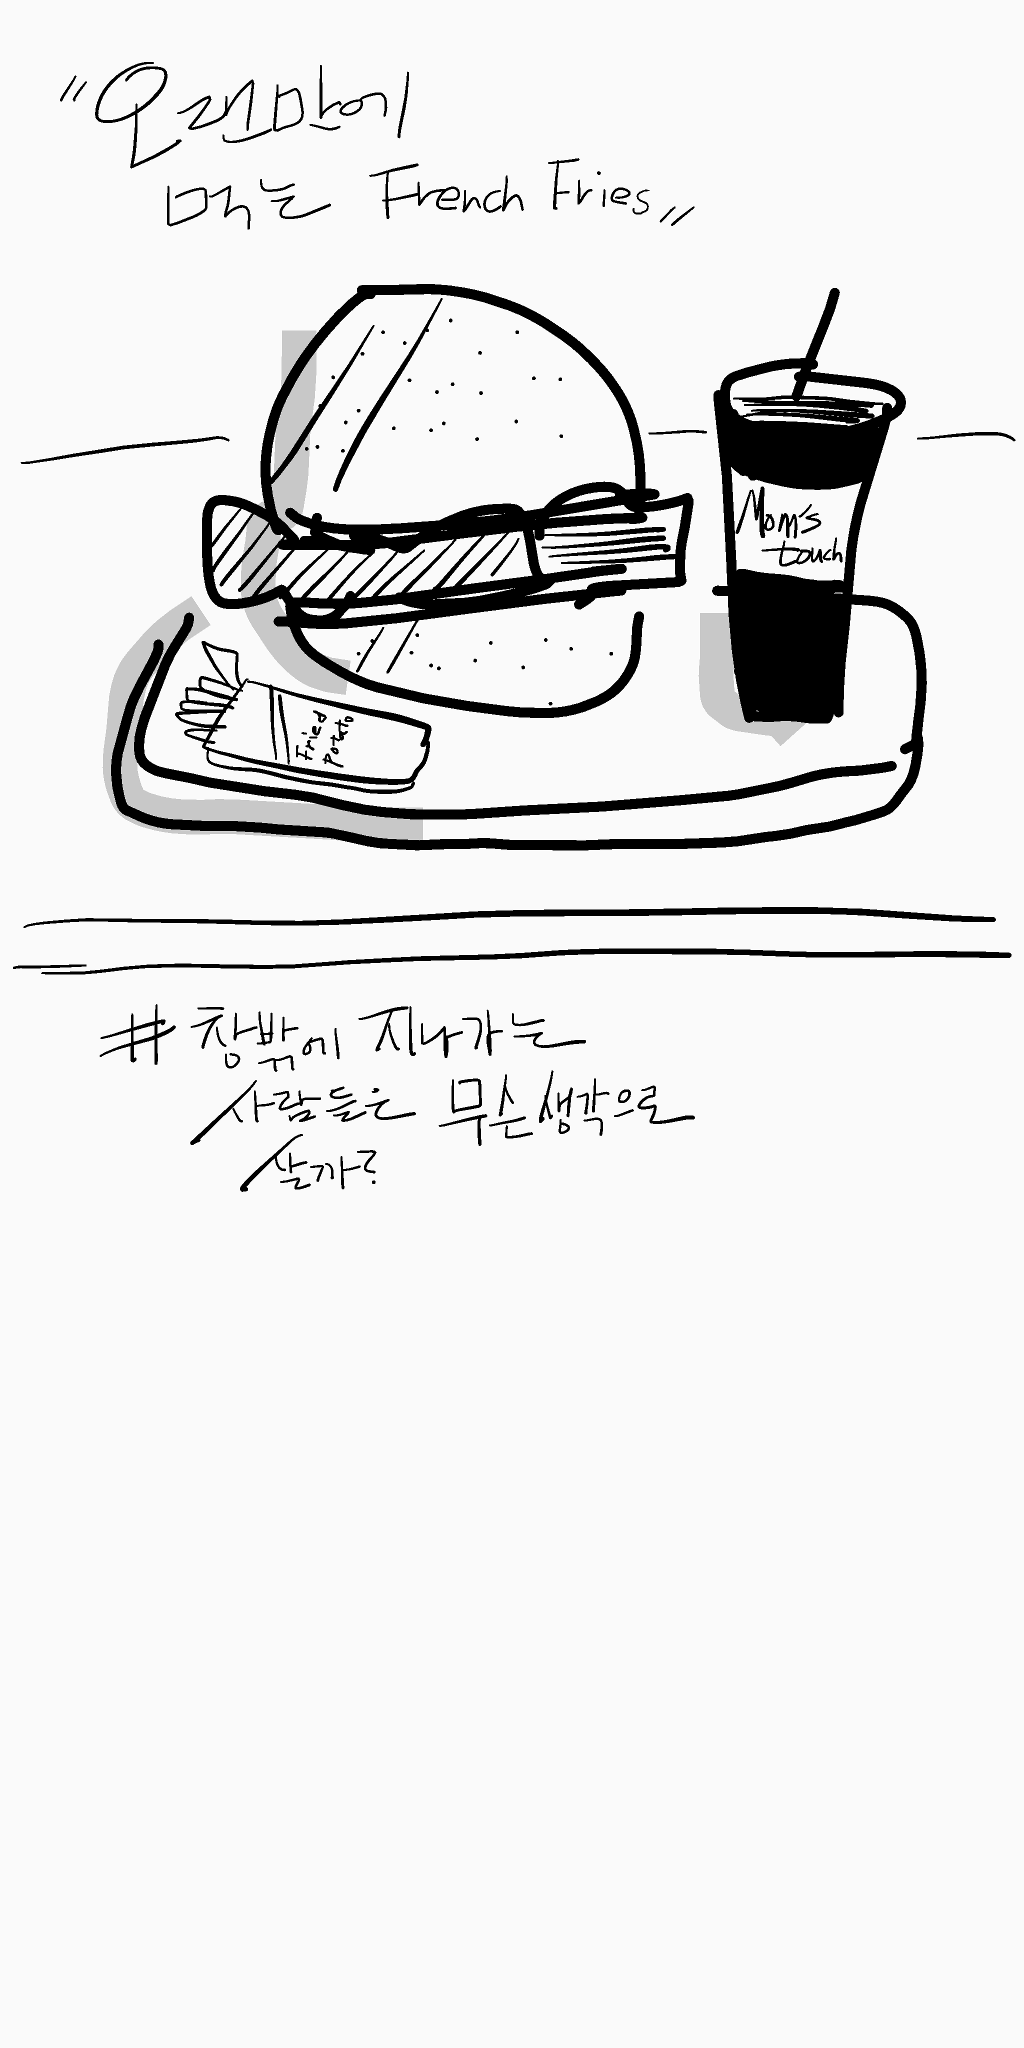 "오랜만에
먹는 French Fries"
Mom's
touch
Fried
Potato
# 창밖에 지나가는
사람들은 무슨생각으로
살까?